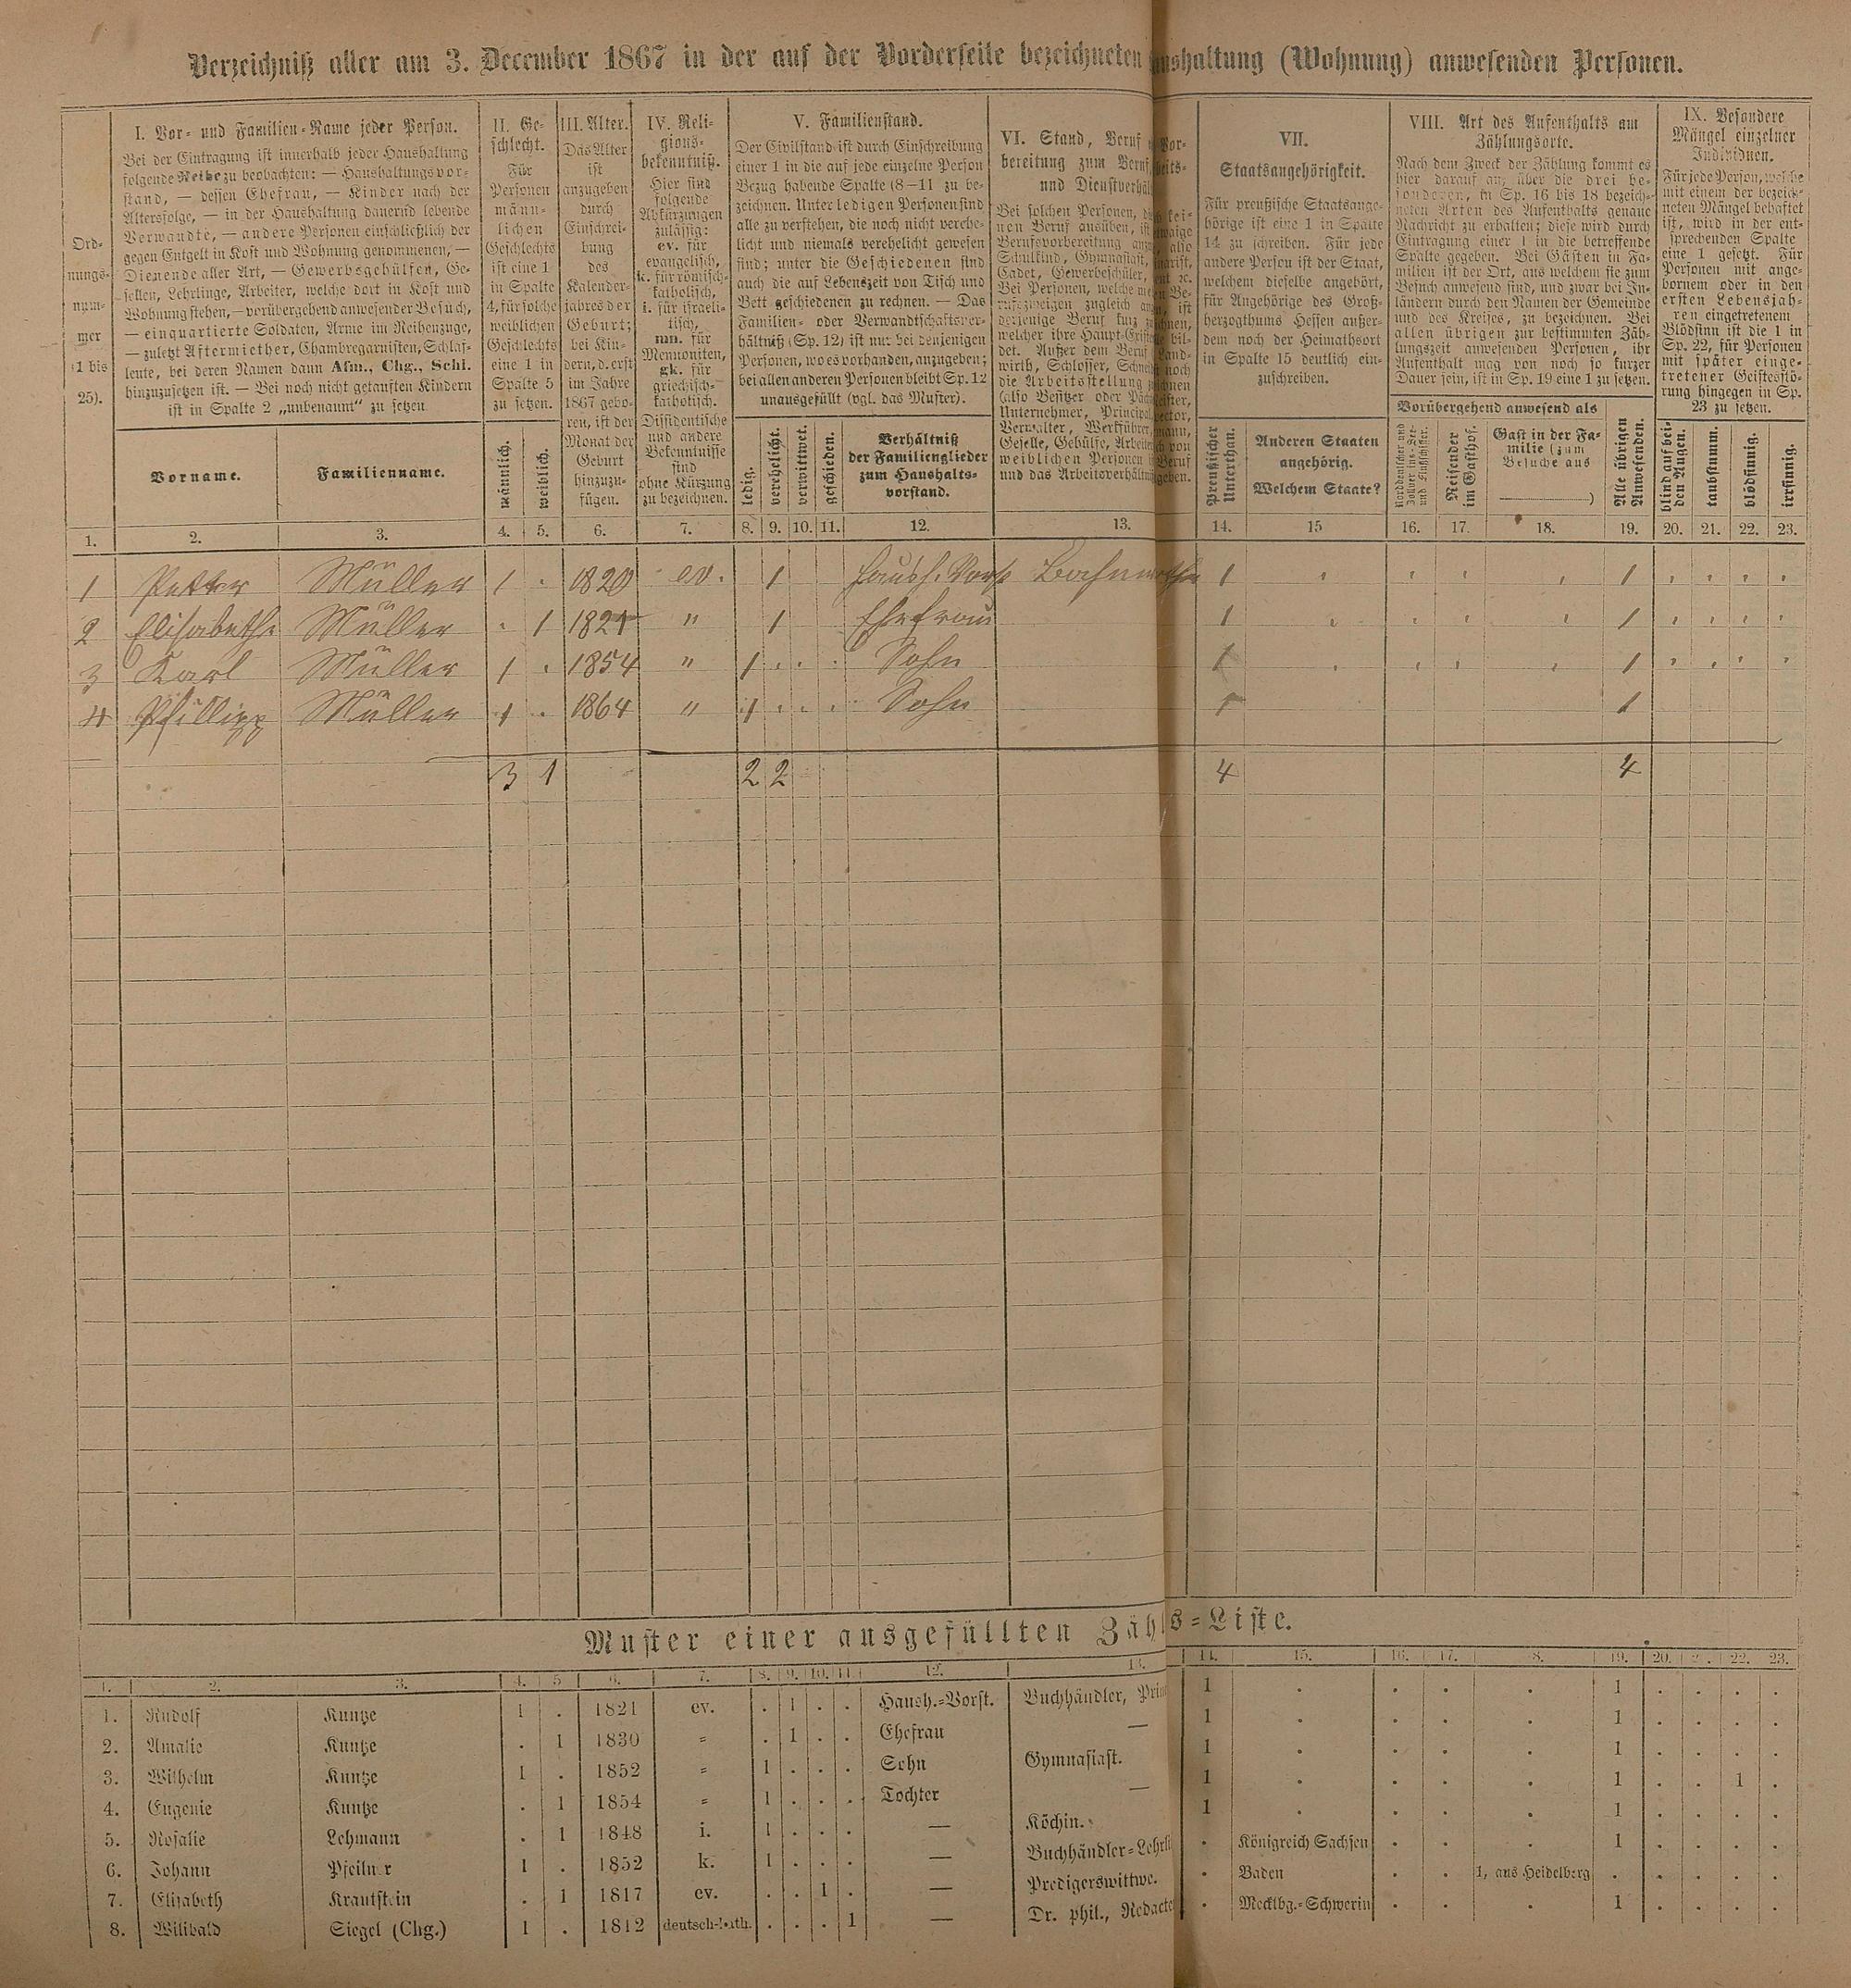 Verzeichniß aller am 3. December 1867 in der auf der Vorderseite bezeichneten Haushaltung (Wohnung) anwesenden Personen.
Ord-
nungs-
num-
mer
(1 bis
25).
I. Vor- und Familien-Name jeder Person.
Bei der Eintragung ist innerhalb jeder Haushaltung
folgende Reihe zu beobachten: — Haushaltungsvor-
stand, — dessen Ehefrau, — Kinder nach der
Altersfolge, — in der Haushaltung dauernd lebende
Verwandte, — andere Personen einschließlich der
gegen Entgelt in Kost und Wohnung genommenen, —
Dienende aller Art, — Gewerbsgehülfen, Ge-
sellen, Lehrlinge, Arbeiter, welche dort in Kost und
Wohnung stehen, — vorübergehend anwesender Besuch,
— einquartierte Soldaten, Arme im Reihenzuge,
— zuletzt Aftermiether, Chambregarnisten, Schlaf-
leute, bei deren Namen dann Afm., Chg., Schl.
hinzuzusetzen ist. — Bei noch nicht getauften Kindern
ist in Spalte 2 „unbenannt“ zu setzen
Vorname.
Familienname.
II. Ge-
schlecht.
Für
Personen
männ-
lichen
Geschlechts
ist eine 1
in Spalte
4, für solche
weiblichen
Geschlechts
eine 1 in
Spalte 5
zu setzen.
männlich.
weiblich.
III. Alter.
Das Alter
ist
anzugeben
durch
Einschrei-
bung
des
Kalender-
jahres der
Geburt;
bei Kin-
dern, d. erst
im Jahre
1867 gebo-
ren, ist der
Monat der
Geburt
hinzuzu-
fügen.
IV. Reli-
gions-
bekenntniß.
Hier sind
folgende
Abkürzungen
zulässig:
ev. für
evangelisch,
k. für römisch-
katholisch,
i. für israeli-
tisch,
mn. für
Mennoniten,
gk. für
griechisch-
katholisch.
Dissidentische
und andere
Bekenntnisse
sind
ohne Kürzung
zu bezeichnen.
V. Familienstand.
Der Civilstand ist durch Einschreibung
einer 1 in die auf jede einzelne Person
Bezug habende Spalte (8—11 zu be-
zeichnen. Unter ledigen Personen sind
alle zu verstehen, die noch nicht verehe-
licht und niemals verehelicht gewesen
sind; unter die Geschiedenen sind
auch die auf Lebenszeit von Tisch und
Bett geschiedenen zu rechnen. — Das
Familien- oder Verwandtschaftsver-
hältniß (Sp. 12) ist nur bei denjenigen
Personen, wo es vorhanden, anzugeben;
bei allen anderen Personen bleibt Sp. 12
unausgefüllt (vgl. das Muster).
ledig.
verehelicht.
verwittwet.
geschieden.
Verhältniß
der Familienglieder
zum Haushalts-
vorstand.
VI. Stand, Beruf
bereitung zum Beruf,
und Dienstverhäl
Bei solchen Personen,
nen Beruf ausüben, ist
Berufsvorbereitung
Schulkind, Gymnasiast,
Cadet, Gewerbeschüler,
Bei Personen, welche
rufszweigen zugleich
derjenige Beruf kurz
welcher ihre Haupt-Existe
det. Außer dem Beruf
wirth, Schlosser,
die Arbeitsstellung
(also Besitzer oder
Unternehmer, Principal,
Verwalter, Werkführer,
Geselle, Gehülfe,
weiblichen Personen
und das Arbeitsverhält
VII.
Staatsangehörigkeit.
Für preußische Staatsange-
hörige ist eine 1 in Spalte
14 zu schreiben. Für jede
andere Person ist der Staat,
welchem dieselbe angehört,
für Angehörige des Groß-
herzogthums Hessen außer-
dem noch der Heimathsort
in Spalte 15 deutlich ein-
zuschreiben.
Preußischer
Unterthan.
Anderen Staaten
angehörig.
Welchem Staate?
VIII. Art des Aufenthalts am
Zählungsorte.
Nach dem Zweck der Zählung kommt es
hier darauf an, über die drei be-
sonderen, in Sp. 16 bis 18 bezeich-
neten Arten des Aufenthalts genaue
Nachricht zu erhalten; diese wird durch
Eintragung einer 1 in die betreffende
Spalte gegeben. Bei Gästen in Fa-
milien ist der Ort, aus welchem sie zum
Besuch anwesend sind, und zwar bei In-
ländern durch den Namen der Gemeinde
und des Kreises, zu bezeichnen. Bei
allen übrigen zur bestimmten Zäh-
lungszeit anwesenden Personen, ihr
Aufenthalt mag von noch so kurzer
Dauer sein, ist in Sp. 19 eine 1 zu setzen.
Vorübergehend anwesend als
Norddeutscher und
Zollver ins-See-
und Flußschiffer.
Reisender
im Gasthof.
Gast in der Fa-
milie (zum
Besuche aus
)
Alle übrigen
Anwesenden.
IX. Besondere
Mängel einzelner
Individuen.
Für jede Person, welche
mit einem der bezeich-
neten Mängel behaftet
ist, wird in der ent-
sprechenden Spalte
eine 1 gesetzt. Für
Personen mit ange-
bornem oder in den
ersten Lebensjah-
ren eingetretenem
Blödsinn ist die 1 in
Sp. 22, für Personen
mit später einge-
tretener Geistesstö-
rung hingegen in Sp.
23 zu setzen.
blind auf bei-
den Augen.
taubstumm.
blödsinnig.
irrsinnig.
1. 2. 3. 4. 5. 6. 7. 8. 9. 10. 11. 12. 13. 14. 15 16. 17. 18. 19. 20. 21. 22. 23.
1 Petter Müller 1 . 1820 ev. 1 Haush. Vorst Bahnwärter 1 1
2 Elisabethe Müller . 1 1821 " 1 Ehefrau 1 1
3 Karl Müller 1 . 1854 " 1 . . . Sohn 1 1
4 Phillipp Müller 1 . 1864 " 1 . . . Sohn 1 1
3 1 2 2 4 4
Muster einer ausgefüllten Zähl s-Liste.
1. 2. 3. 4. 5 6. 7. 8. 9. 10. 11. 12. 13. 14. 15. 16. 17. 8. 19. 20. 2 . 22. 23.
1. Rudolf Kuntze 1 . 1821 ev. . 1 . . Haush.-Vorst. Buchhändler, Prin 1 . . . . 1 . . . .
2. Amalie Kuntze . 1 1830 = . 1 . . Ehefrau — 1 . . . . 1 . . . .
3. Wilhelm Kuntze 1 . 1852 = 1 . . . Sohn Gymnasiast. 1 . . . . 1 . . . .
4. Eugenie Kuntze . 1 1854 = 1 . . . Tochter — 1 . . . . 1 . . 1 .
5. Rosalie Lehmann . 1 1848 i. 1 . . . — Köchin. 1 . . . . 1 . . . .
6. Johann Pfeilner 1 . 1852 k. 1 . . . — Buchhändler-Lehrli . Königreich Sachsen . . . 1 . . . .
7. Elisabeth Krautstein . 1 1817 ev. . . 1 . — Predigerswittwe. . Baden . . 1, aus Heidelberg . . . . .
8. Willbald Siegel (Chg.) 1 . 1812 deutsch-kath. . . . 1 — Dr. phil., Redacte . Mecklbg.-Schwerin . . . 1 . . . .